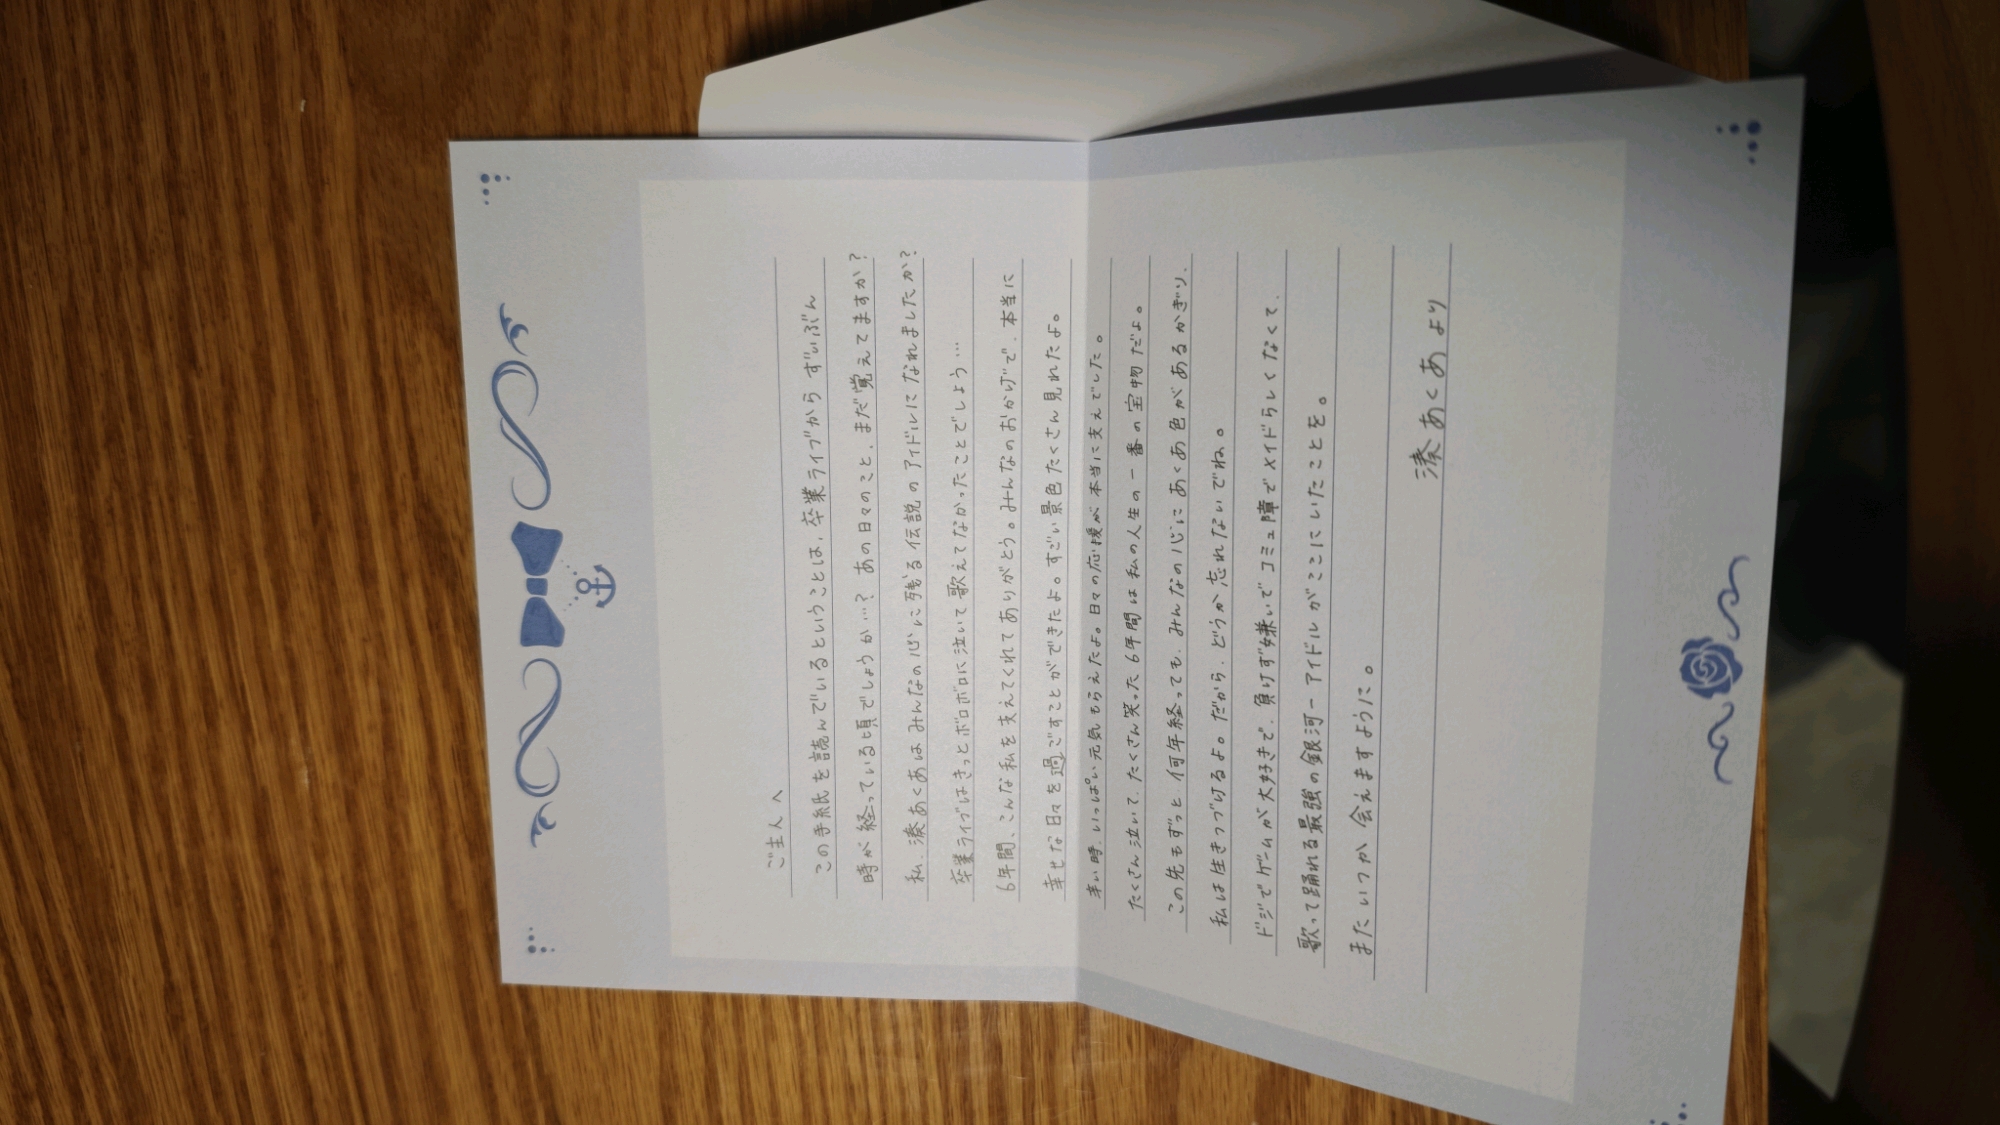 ご主人へ
この手紙を読んでいるということは、卒業ライブからずいぶん
時が経っている頃でしょうか…？あの日々のこと、まだ覚えてますか？
私、湊あくあはみんなの心に残る伝説のアイドルになれましたか？
卒業ライブはきっとボロボロに泣いて歌えてなかったことでしょう…
6年間、こんな私を支えてくれてありがとう。みんなのおかげで、本当に
幸せな日々を過ごすことができたよ。すごい景色たくさん見れたよ。
辛い時、いっぱい元気もらえたよ。日々の応援が本当に支えでした。
たくさん泣いて、たくさん笑った6年間は私の人生の一番の宝物だよ。
この先もずっと、何年経っても、みんなの心にあくあ色があるかぎり、
私は生きつづけるよ。だから、どうか忘れないでね。
ドジでゲームが大好きで、負けず嫌いでコミュ障でメイドらしくなくて、
歌って踊れる最強の銀河一アイドルがここにいたことを。
またいつか会えますように。
湊あくあより